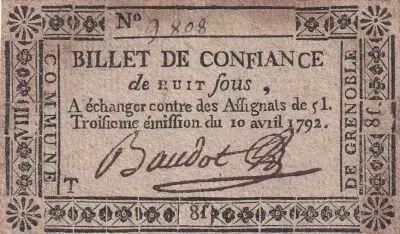 No 9808
BILLET DE CONFIANCE
de HUIT sous,
A échanger contre des Assignats de 5 l.
Troisieme émission du 10 avril 1792.
Baudot
COMMUNE
DE GRENOBLE
VIII
8 f
T
8 f